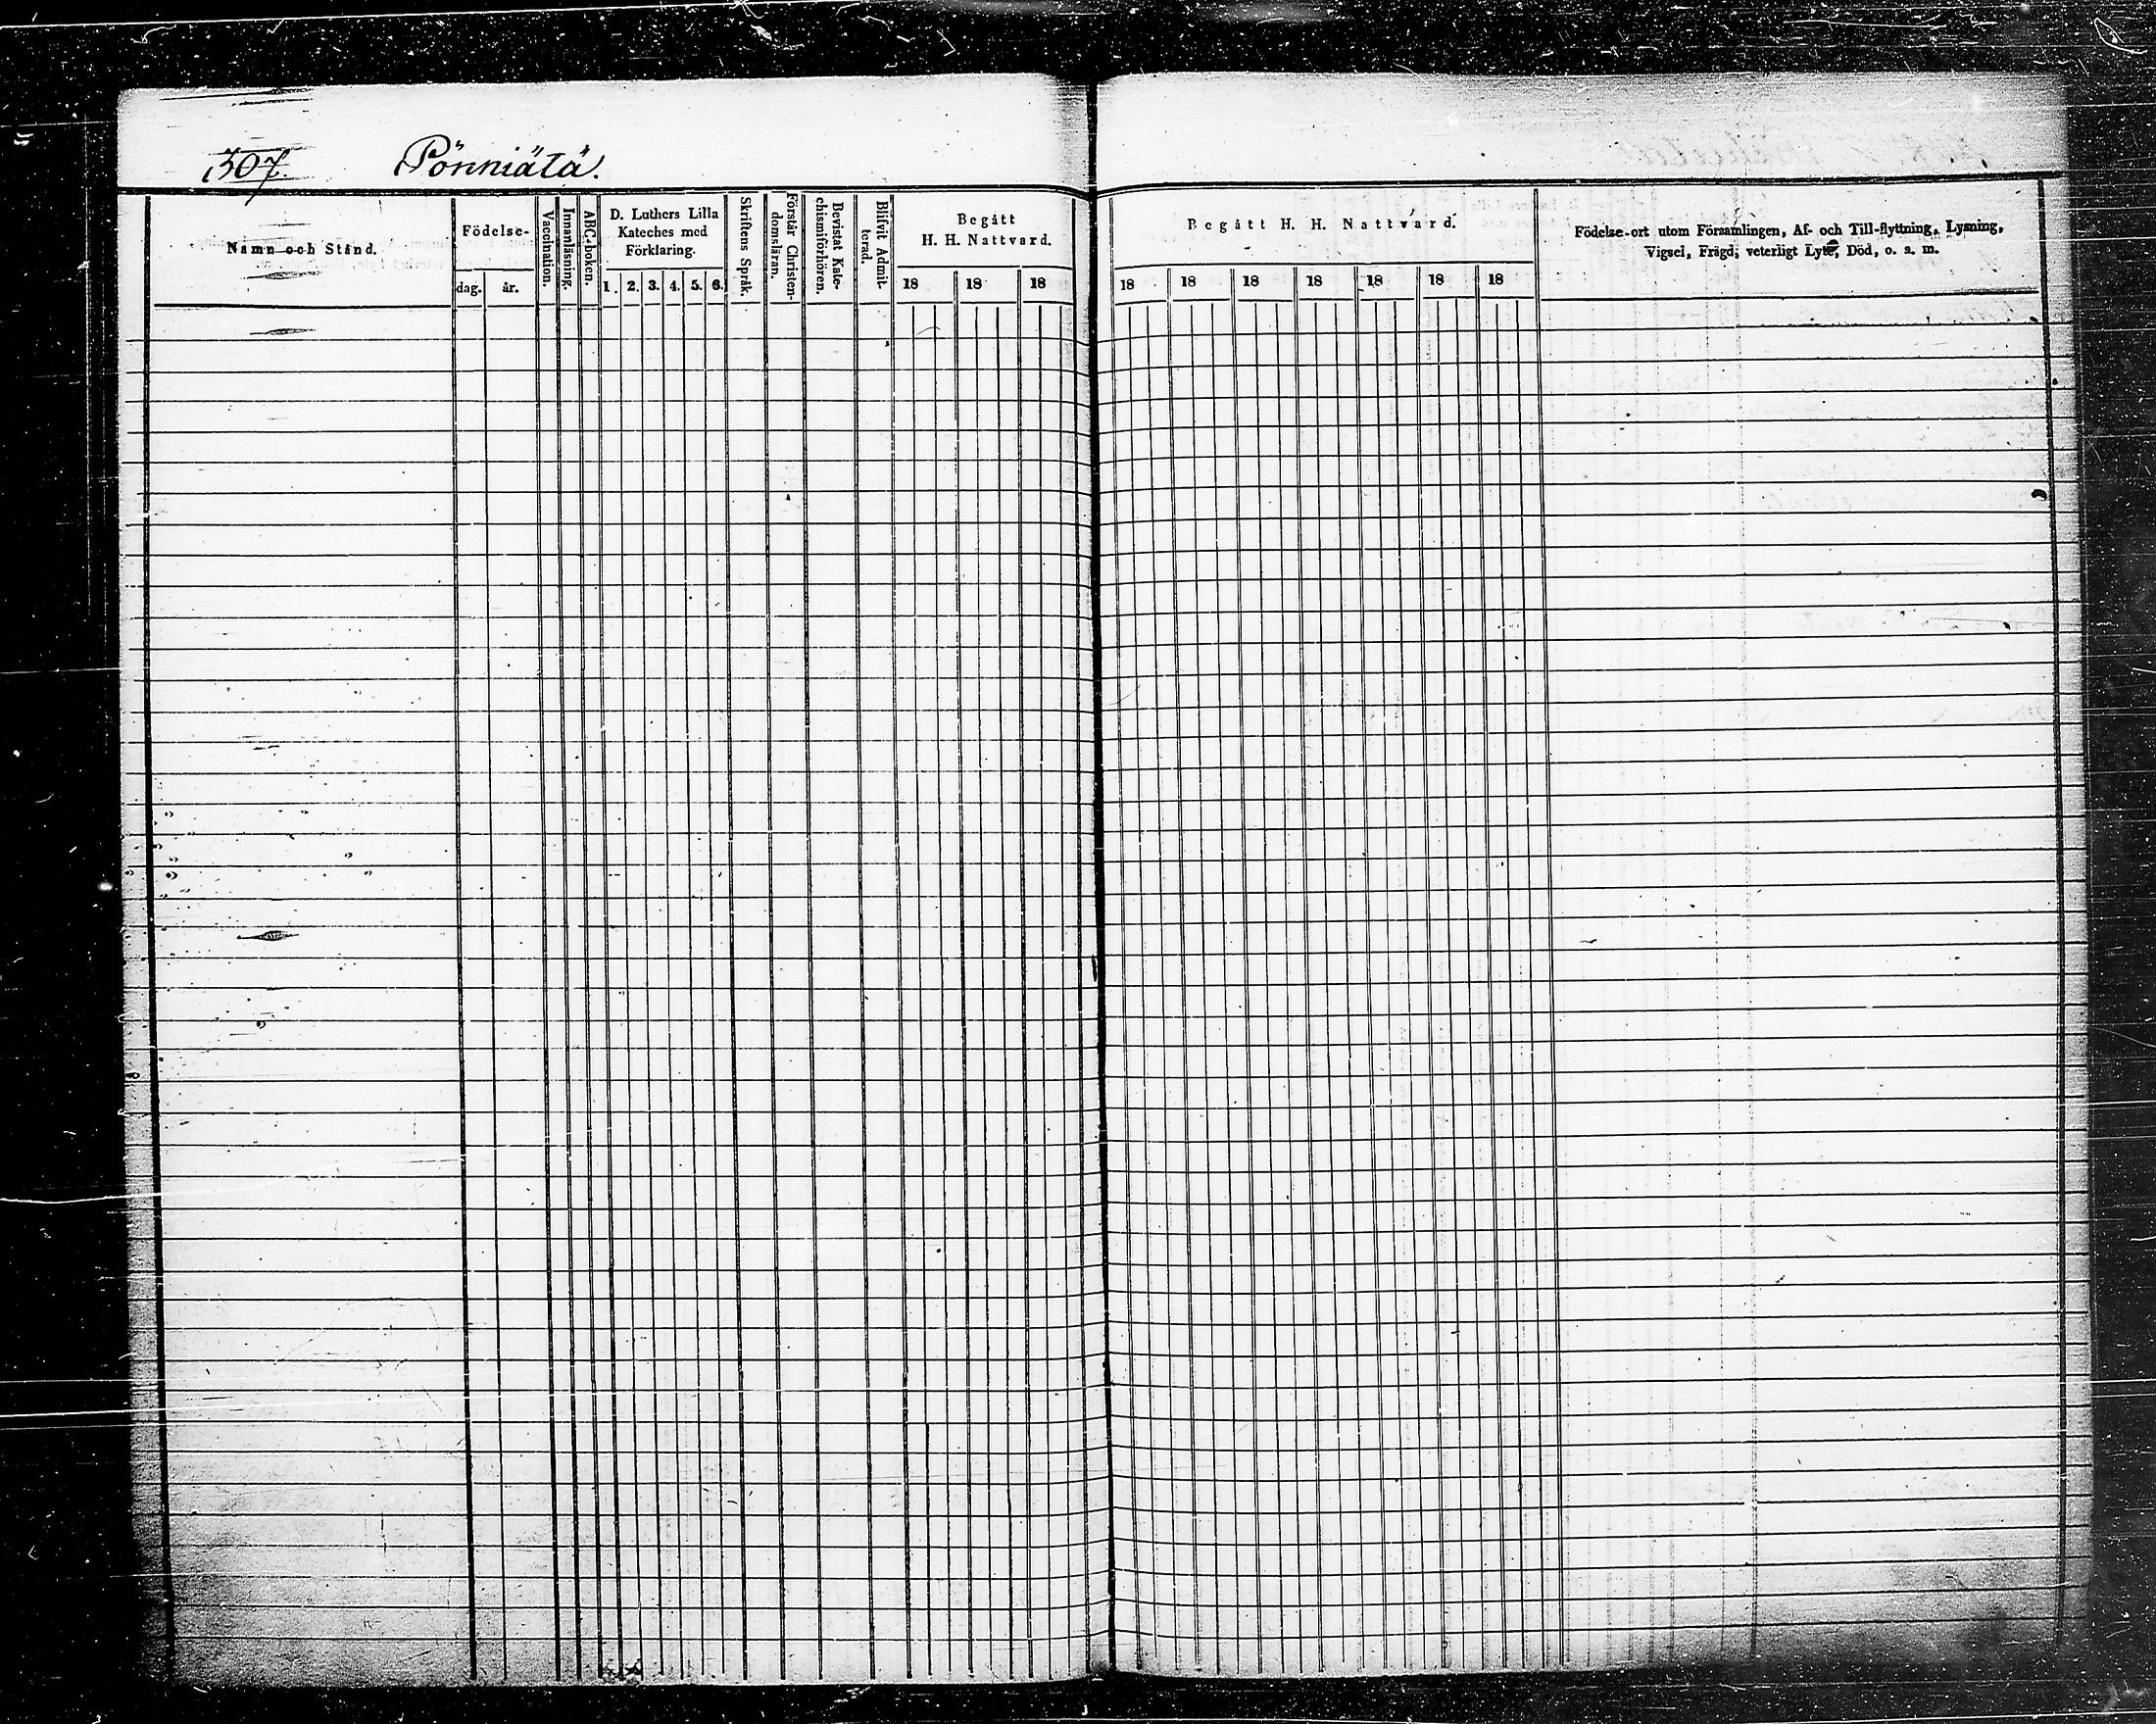 307. Pönniälä.
Namn och Stånd.
Födelse-
dag. år.
Vaccination.
Innanläsning.
ABC-boken.
D. Luthers Lilla
Kateches med
Förklaring.
1. 2. 3. 4. 5. 6.
Skriftens Språk.
Förstår Christen-
domsläran.
Bevistat Kate-
chismiförhören.
Blifvit Admit-
terad.
Begått
H. H. Nattvard.
18 18 18
Begått H. H. Nattvard.
18 18 18 18 18 18 18
Födelse-ort utom Församlingen, Af- och Till-flyttning, Lysning,
Vigsel, Frägd, veterligt Lyte, Död, o. s. m.